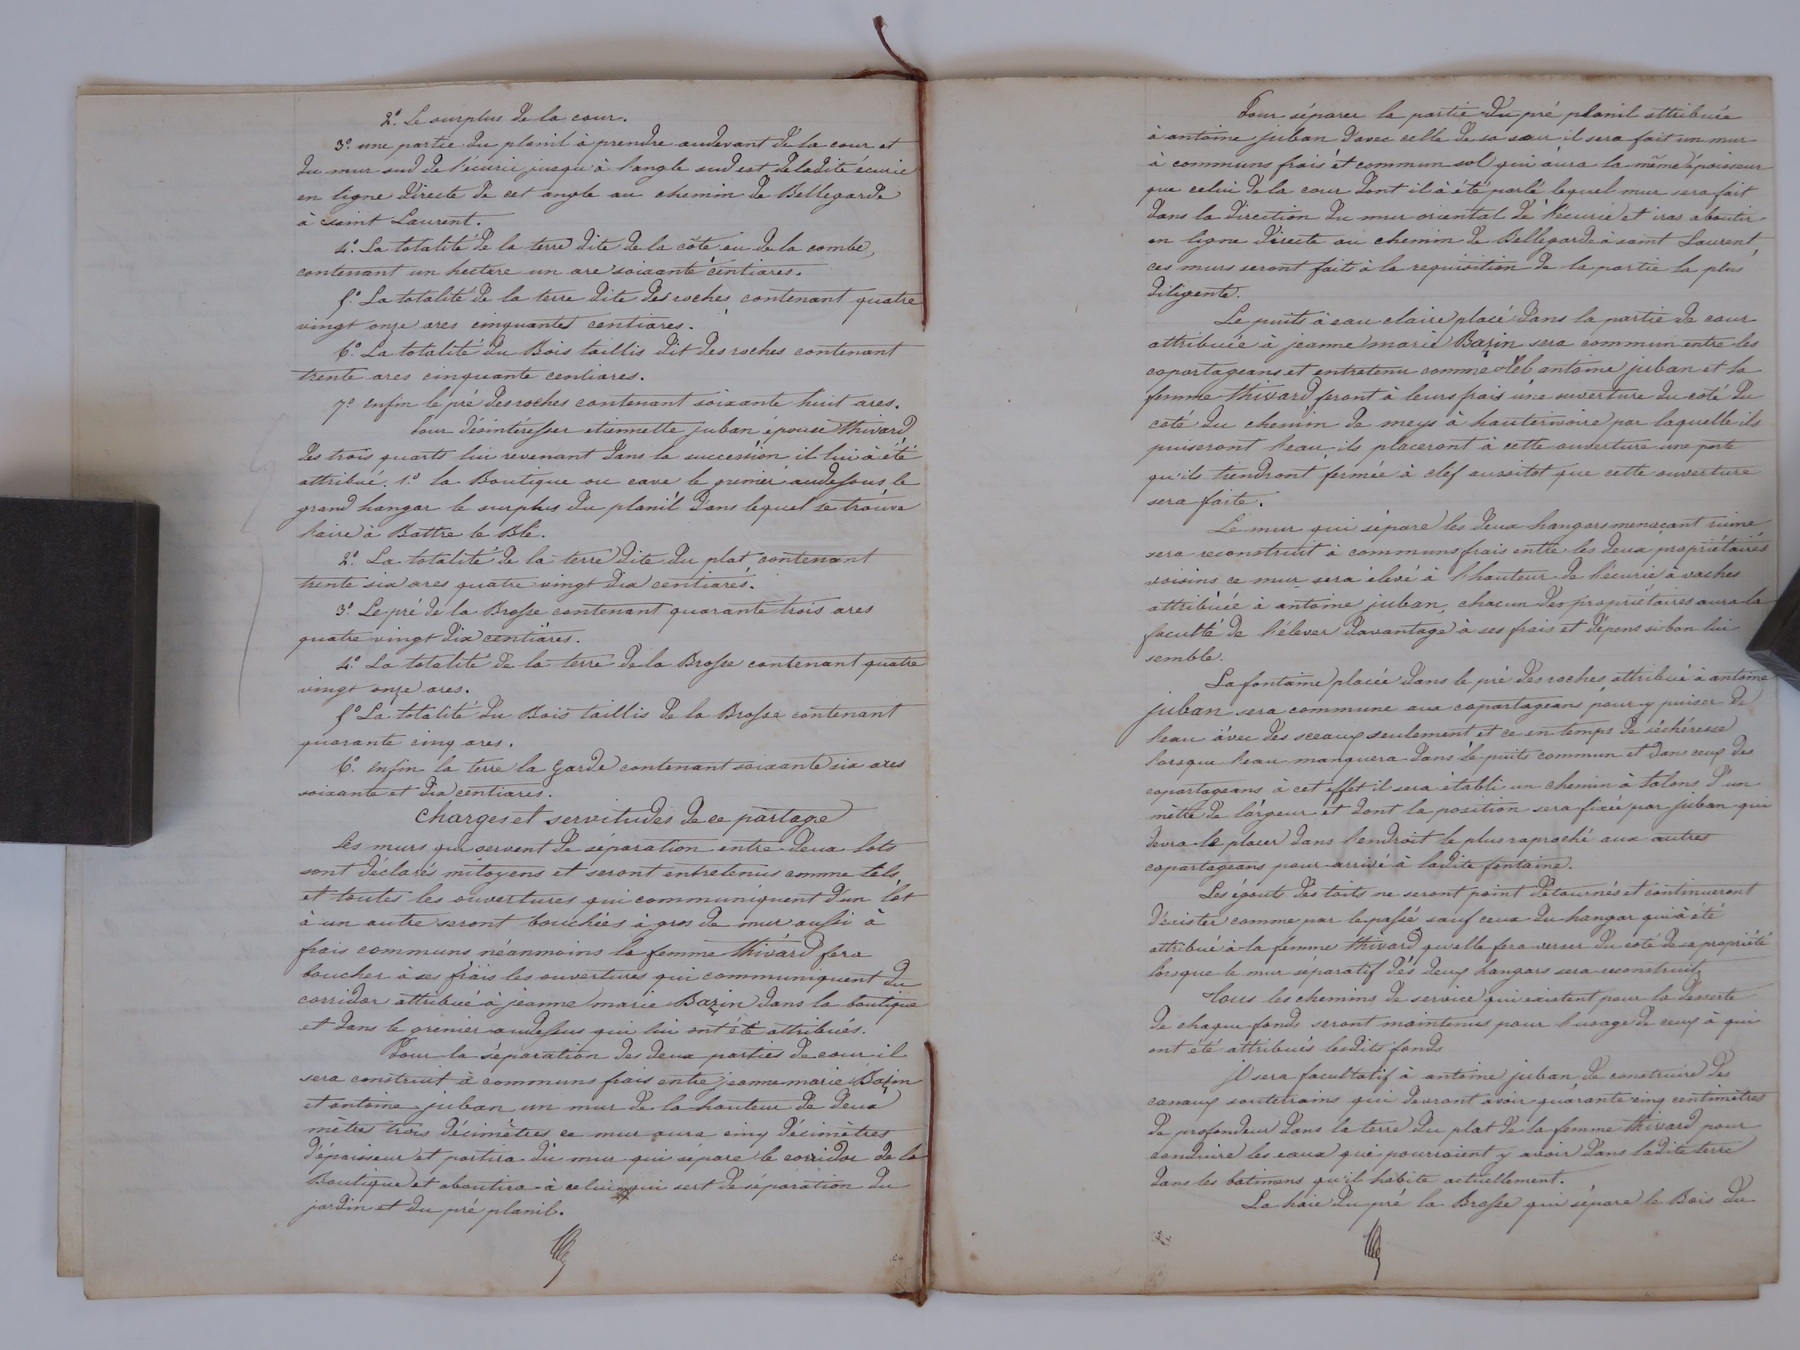 2° Le surplus de la cour.
3° une partie du planil à prendre audevant de la cour et
du mur sud de l'écurie jusqu'à l'angle sud est de ladite écurie
en ligne directe de cet angle au chemin de Bellegarde
à saint Laurent.
4° La totalité de la terre dite de la côte ou de la combe,
contenant un hectare un are soixante centiares.
5° La totalité de la terre dite des roches contenant quatre
vingt onze ares cinquante centiares.
6° La totalité du Bois taillis dit des roches contenant
trente ares cinquante centiares.
7° enfin le pré des roches contenant soixante huit ares.
Pour désintéresser etiennette juban epouse thivard
des trois quarts lui revenant dans la succession il lui à été
attribué. 1° la Boutique ou cave le grenier audessous le
grand hangar le surplus du planil dans lequel se trouve
l'aire à Battre le Blé.
2° La totalité de la terre dite du plat contenant
trente six ares quatre vingt dix centiares.
3° Le pré de la Brosse contenant quarante trois ares
quatre vingt dix centiares.
4° La totalité de la terre de la Brosse contenant quatre
vingt onze ares.
5° La totalité du Bois taillis de la Brosse contenant
quarante cinq ares.
6° enfin la terre la Garde contenant soixante six ares
soixante et dix centiares.
Charges et servitudes de ce partage
Les murs qui servent de séparation entre deux lots
sont déclarés mitoyens et seront entretenus comme tels,
et toutes les ouvertures qui communiquent d'un lot
à un autre seront bouchées à gros de mur aussi à
frais communs néanmoins la femme thivard fera
boucher à ses frais les ouvertures qui communiquent du
corridor attribué à jeanne marie Bazin dans la boutique
et dans le grenier audessus qui lui ont été attribués.
Pour la séparation des deux parties de cour il
sera construit à communs frais entre jeanne marie Bazin
et antoine juban un mur de la hauteur de deux
mètres trois décimètres ce mur aura cinq décimètres
d'épaisseur et partira du mur qui separe le corridor de la
Boutique et aboutira à celui qui sert de separation du
jardin et du pré planil.
Pour séparer la partie du pré planil attribuée
à antoine juban d'avec celle de sa sœur il sera fait un mur
à communs frais et commun sol qui aura la même épaisseur
que celui de la cour dont il à été parlé lequel mur sera fait
dans la direction du mur oriental de l'écurie et iras aboutir
en ligne directe au chemin de Bellegarde à saint Laurent,
ces murs seront faits à la requisition de la partie la plus
diligente.
Le puits à eau claire placé dans la partie de cour
attribuée à jeanne marie Bazin sera commun entre les
copartageans et entretenu comme tel antoine juban et la
femme thivard feront à leurs frais une ouverture du coté du
coté du chemin de meys à hauterivoire par laquelle ils
puiseront l'eau ils placeront à cette ouverture une porte
qu'ils tiendront fermée à clef aussitot que cette ouverture
sera faite.
Le mur qui sépare les deux hangars menaçant ruine
sera reconstruit à communs frais entre les deux propriétaires
voisins ce mur sera élevé à l'hauteur de l'écurie à vaches
attribuée à antoine juban, chacun des propriétaires aura la
faculté de l'élever davantage à ses frais et dépens si bon lui
semble.
La fontaine placée dans le pré des roches attribué à antoine
juban sera commune aux copartageans pour y puiser de
l'eau avec des sceaux seulement et ce en temps de séchéresse
lorsque l'eau manquera dans le puits commun et dans ceux des
copartageans à cet effet il sera établi un chemin à talons d'un
mètre de largeur et dont la position sera fixée par juban qui
devra le placer dans l'endroit le plus raproché aux autres
copartageans pour arrivé à ladite fontaine.
Les égouts des toits ne seront point détournés et continueront
d'exister comme par le passé sauf ceux du hangar qui à été
attribué à la femme thivard qu'elle fera verser du coté de sa propriété
lorsque le mur séparatif des deux hangars sera reconstruit
Tous les chemins de service qui existent pour la desserte
de chaque fonds seront maintenus pour l'usage de ceux à qui
ont été attribués lesdits fonds
jl sera facultatif à antoine juban de construire des
canaux souterrains qui devront avoir quarante cinq centimètres
de profondeur dans la terre du plat de la femme thivard pour
conduire les eaux qui pourraient y avoir dans ladite terre
dans les batimens qu'il habite actuellement.
La haie du pré la Brosse qui sépare le Bois du